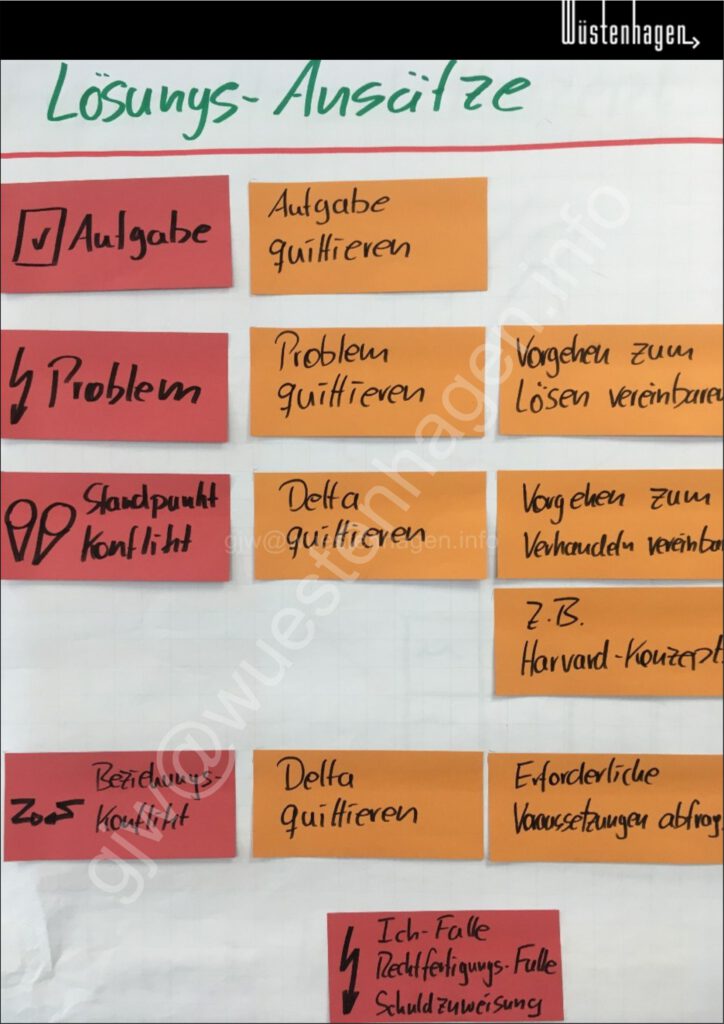 Wüstenhagen
Lösungs-Ansätze
Aufgabe
Aufgabe
quittieren
Problem
Problem
quittieren
Vorgehen zum
Lösen vereinbaren
Standpunkt
Konflikt
Delta
quittieren
Vorgehen zum
Verhandeln vereinba
Z.B.
Harvard-Konzept
Beziehungs-
Konflikt
Delta
quittieren
Erforderliche
Voraussetzungen abfrag
Ich-Falle
Rechtfertigungs-Falle
Schuldzuweisung
gjw@wuestenhagen.info
gjw@wuestenhagen.info